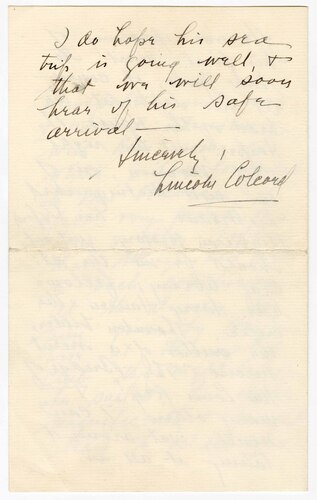 I do hope his sea
trip is going well, &
that we will soon
hear of his safe
arrival—
Sincerely,
Lincoln Colcord